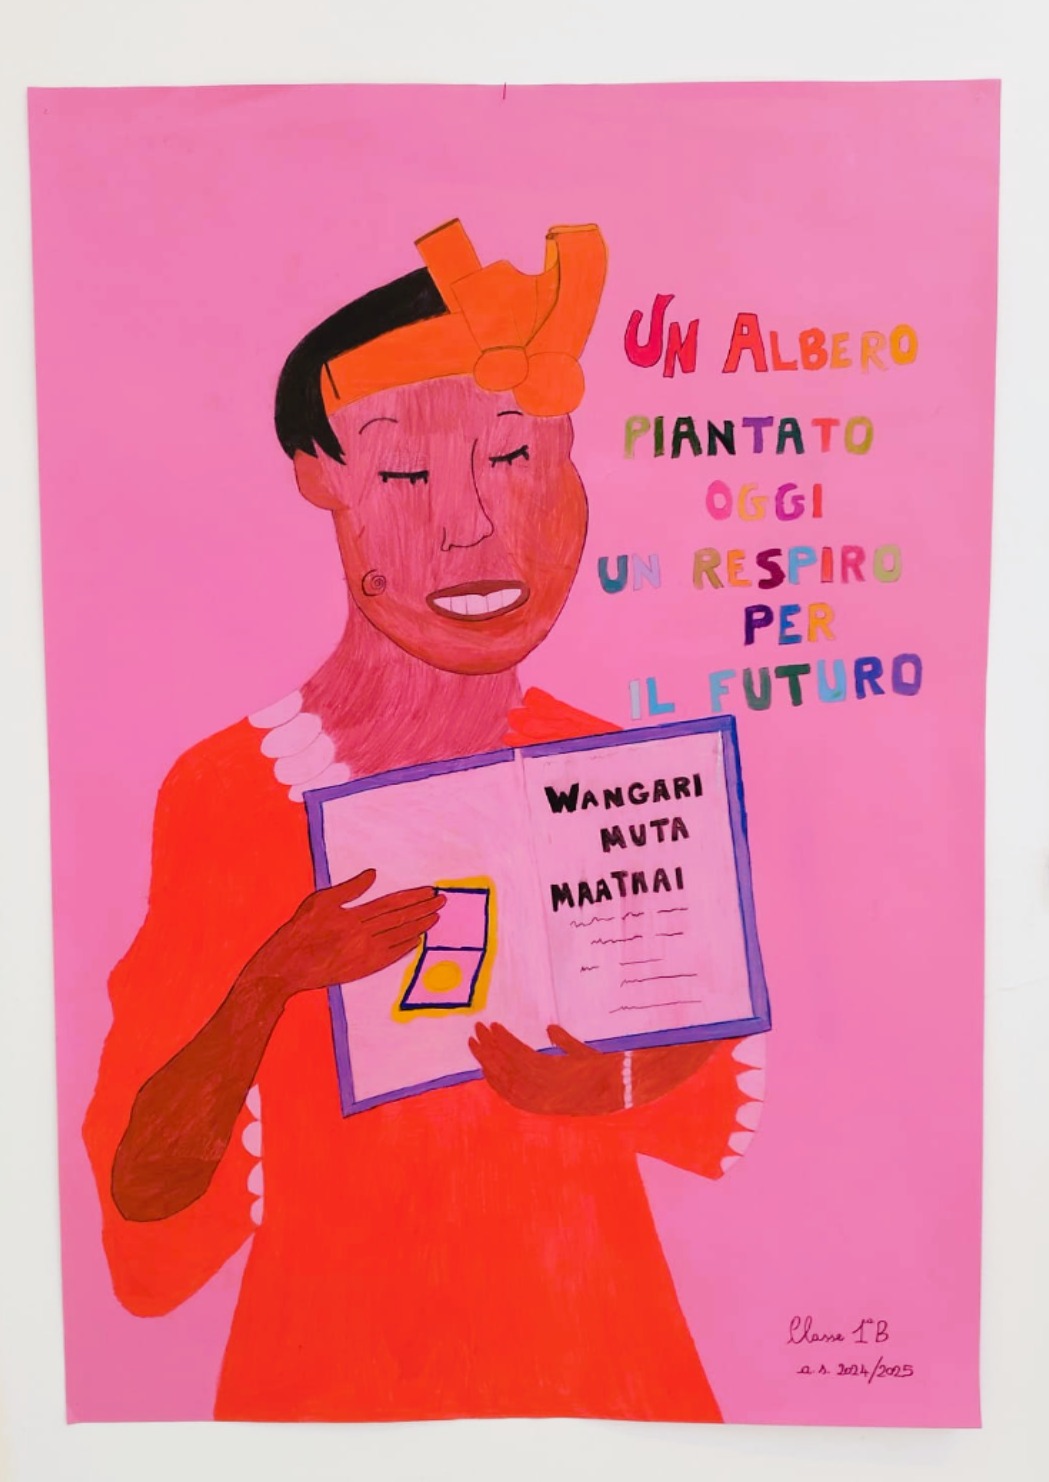 UN ALBERO
PIANTATO
OGGI
UN RESPIRO
PER
IL FUTURO
WANGARI
MUTA
MAATHAI
Classe 1ªB
a.s. 2024/2025